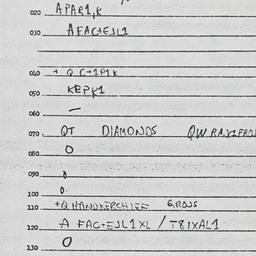 020 APAR1,K
030 AFAC+EJL1
040 + Q C+1P1K
050 KEPK1
060 —
070. QT DIAMONDS QW
080. O
090
100 0.
110 +Q HANDKERCHIEF GROJS
120 A FAC+EJL1XL / T81XAL1
130 O